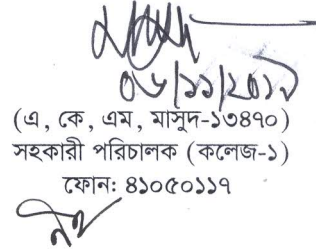 ০৬/১১/২০১৭
(এ, কে, এম, মাসুদ-১৩৪৭০)
সহকারী পরিচালক (কলেজ-১)
ফোন: ৪১০৫০১১৭